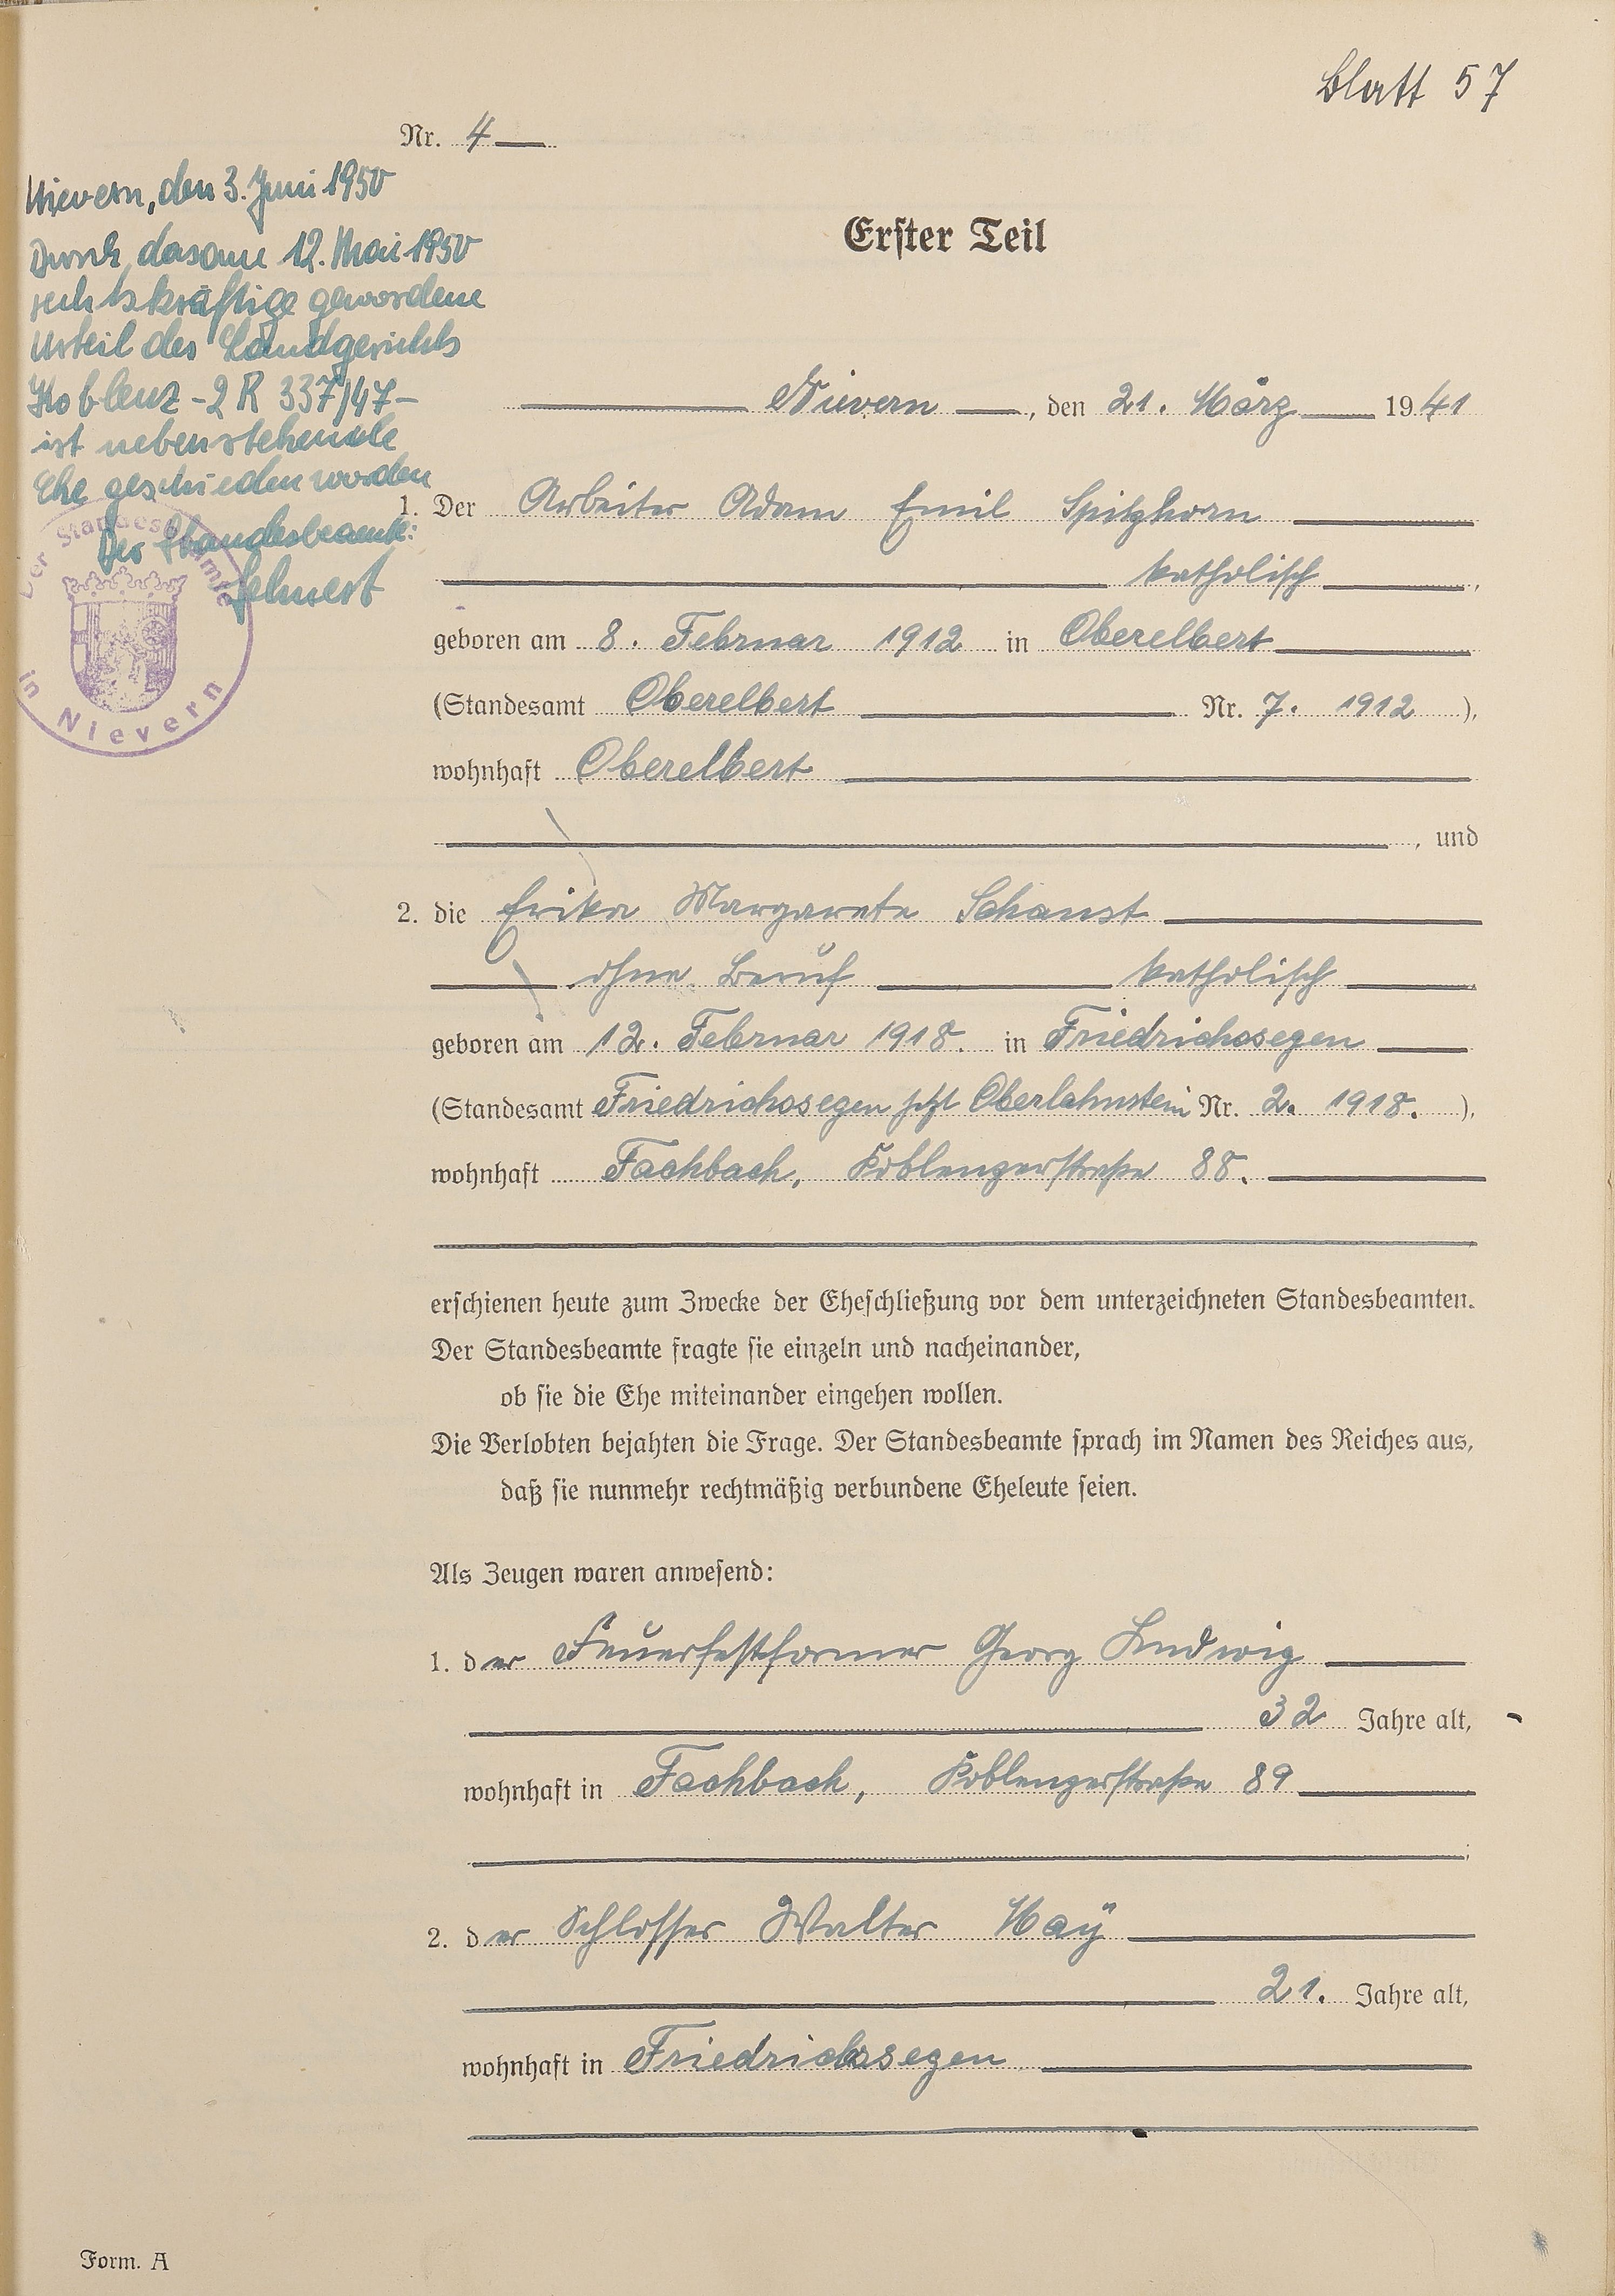 Blatt 57
Nr. 4
Nievern, den 3. Juni 1950
Durch das am 12. Mai 1950
rechtskräftige gewordene
Urteil des Landgerichts
Koblenz - 2 R 337/47 -
ist nebenstehende
Ehe geschieden worden
Der Standesbeamte:
Der Standesbeamte
in Nievern
Erster Teil
Nievern, den 21. März 1941
1. Der Arbeiter Adam Emil Spitzhorn
katholisch,
geboren am 8. Februar 1912 in Oberelbert
(Standesamt Oberelbert Nr. 7. 1912),
wohnhaft Oberelbert
, und
2. die Erika Margarete Schanst
ohne Beruf katholisch
geboren am 12. Februar 1918. in Friedrichssegen
(Standesamt Friedrichssegen jetzt Oberlahnstein Nr. 2. 1918.),
wohnhaft Fachbach, Koblenzerstraße 88.
erschienen heute zum Zwecke der Eheschließung vor dem unterzeichneten Standesbeamten.
Der Standesbeamte fragte sie einzeln und nacheinander,
ob sie die Ehe miteinander eingehen wollen.
Die Verlobten bejahten die Frage. Der Standesbeamte sprach im Namen des Reiches aus,
daß sie nunmehr rechtmäßig verbundene Eheleute seien.
Als Zeugen waren anwesend:
1. der Feuerfestformer Georg Ludwig
32 Jahre alt,
wohnhaft in Fachbach, Koblenzerstraße 89
;
2. der Schlosser Walter Maÿ
21. Jahre alt,
wohnhaft in Friedrichssegen
Form. A